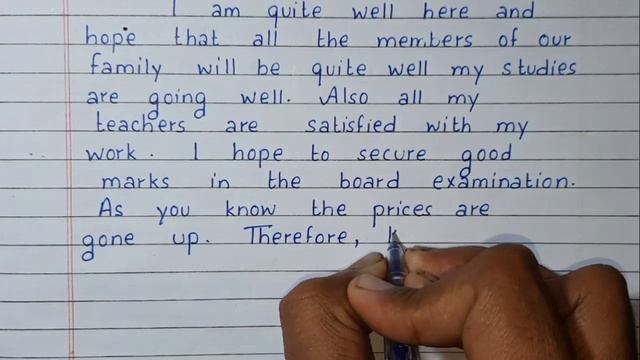 I am quite well here and
hope that all the members of our
family will be quite well my studies
are going well. Also all my
teachers are satisfied with my
work. I hope to secure good
marks in the board examination.
As you know the prices are
gone up. Therefore,